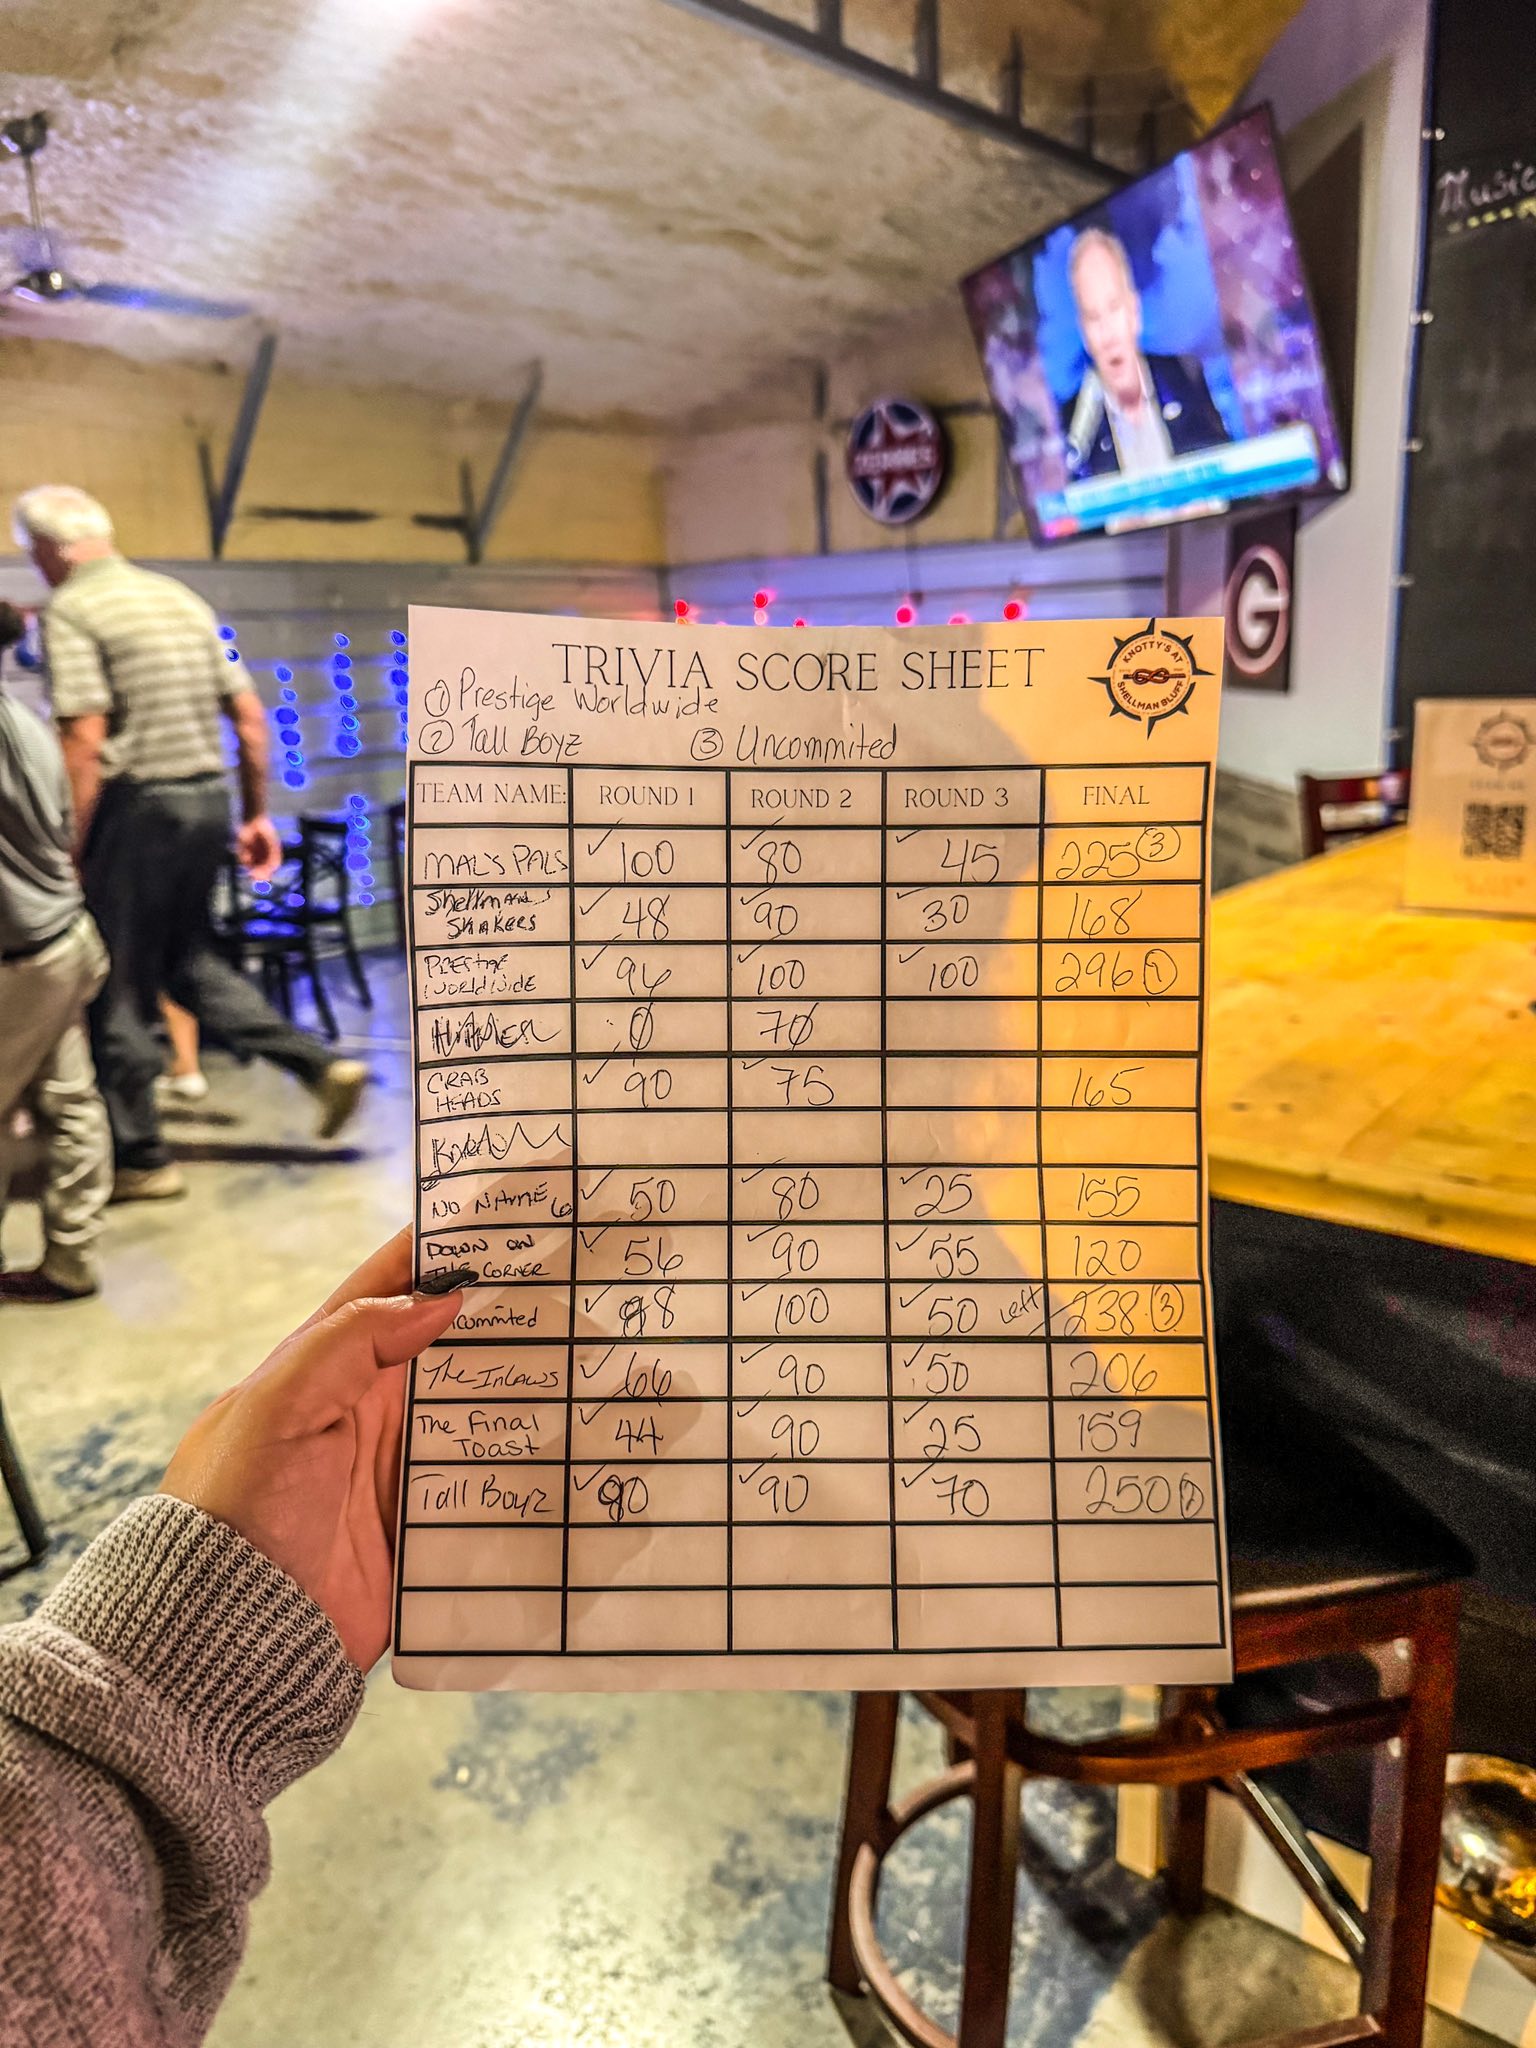 Music
G
TRIVIA SCORE SHEET
KNOTTY'S AT
SHELLMAN BLUFF
① Prestige Worldwide
② Tall Boyz ③ Uncommited
TEAM NAME: ROUND 1 ROUND 2 ROUND 3 FINAL
MAL'S PALS ✓ 100 ✓ 80 ✓ 45 225 ③
Shellman's
SHAKERS ✓ 48 ✓ 90 ✓ 30 168
PREstige
WORLDWIDE ✓ 96 ✓ 100 ✓ 100 296 ①
0 70
CRAB
HEADS ✓ 90 ✓ 75 165
NO NAME 6 ✓ 50 ✓ 80 ✓ 25 155
DOWN ON
THE CORNER ✓ 56 ✓ 90 ✓ 55 120
commited ✓ 98 ✓ 100 ✓ 50 Left 238 ③
The InLAWS ✓ 66 ✓ 90 ✓ 50 206
The Final
Toast ✓ 44 ✓ 90 ✓ 25 159
Tall Boyz ✓ 90 ✓ 90 ✓ 70 250 ②